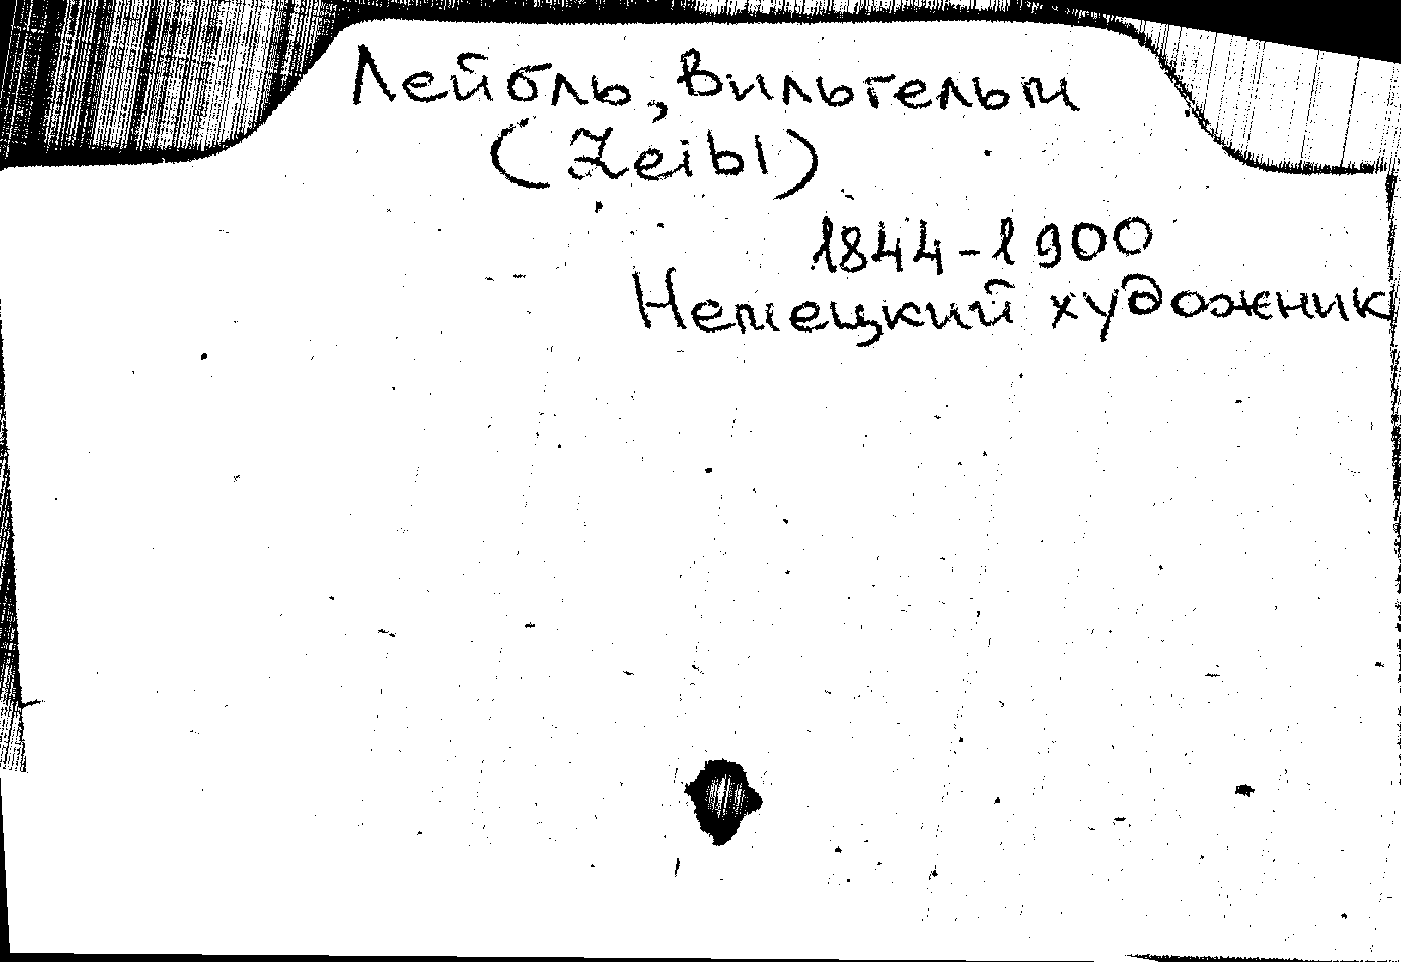 Лейбль, Вильгельм
(Leibl)
1844-1900
Немецкий художник